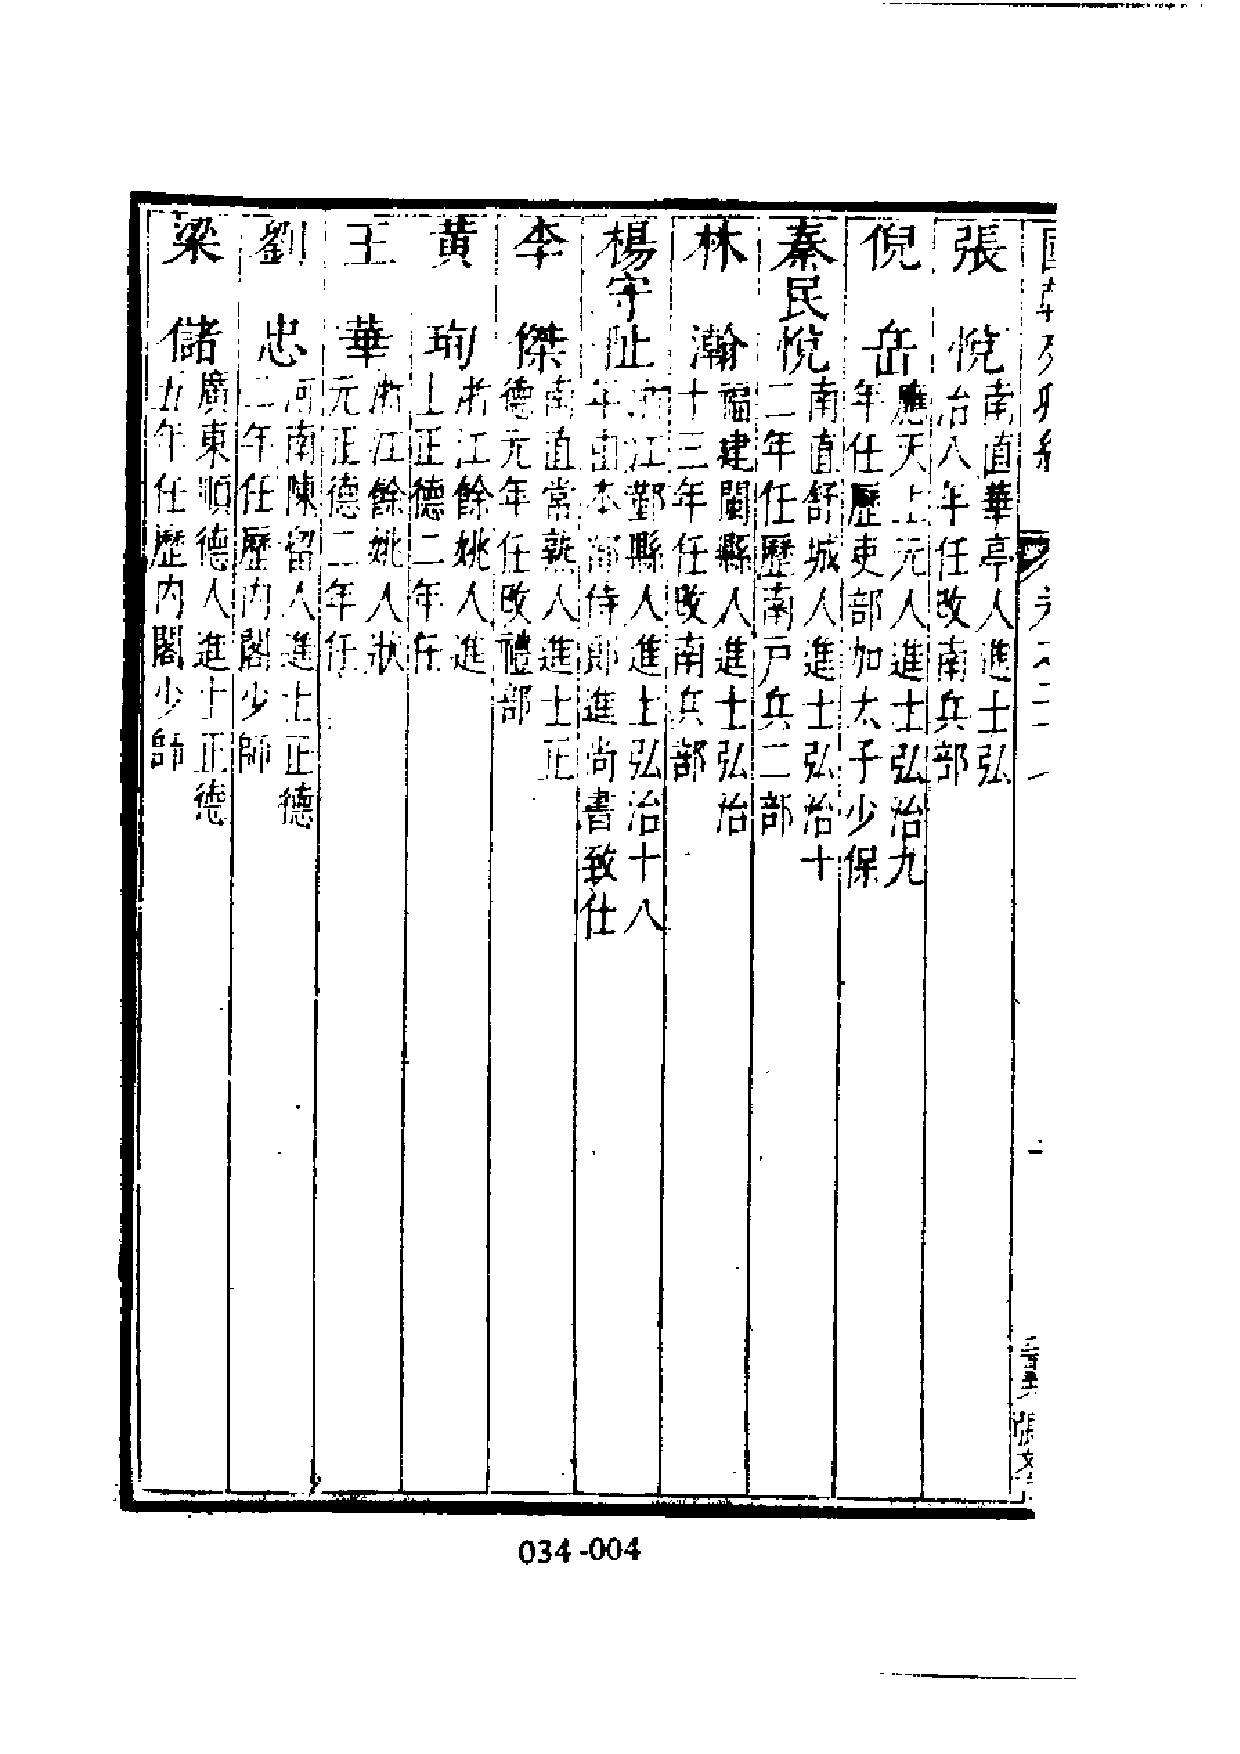 張　悅 南直華亭人進士弘
治八年任改南兵部
倪　岳 應天上元人進士弘治九
年任歷吏部加太子少保
秦民悅 南直舒城人進士弘治十
二年任歷南戶兵二部
林　瀚 福建閩縣人進士弘治
十三年任改南兵部
楊守阯 浙江鄞縣人進士弘治十八
年由本部侍郎進尚書致仕
李　傑 南直常熟人進士正
德元年任改禮部
黃　珣 浙江餘姚人進
士正德二年任
王　華 浙江餘姚人狀
元正德二年任
劉　忠 河南陳留人進士正德
二年任歷內閣少師
梁　儲 廣東順德人進士正德
五年任歷內閣少師
034-004